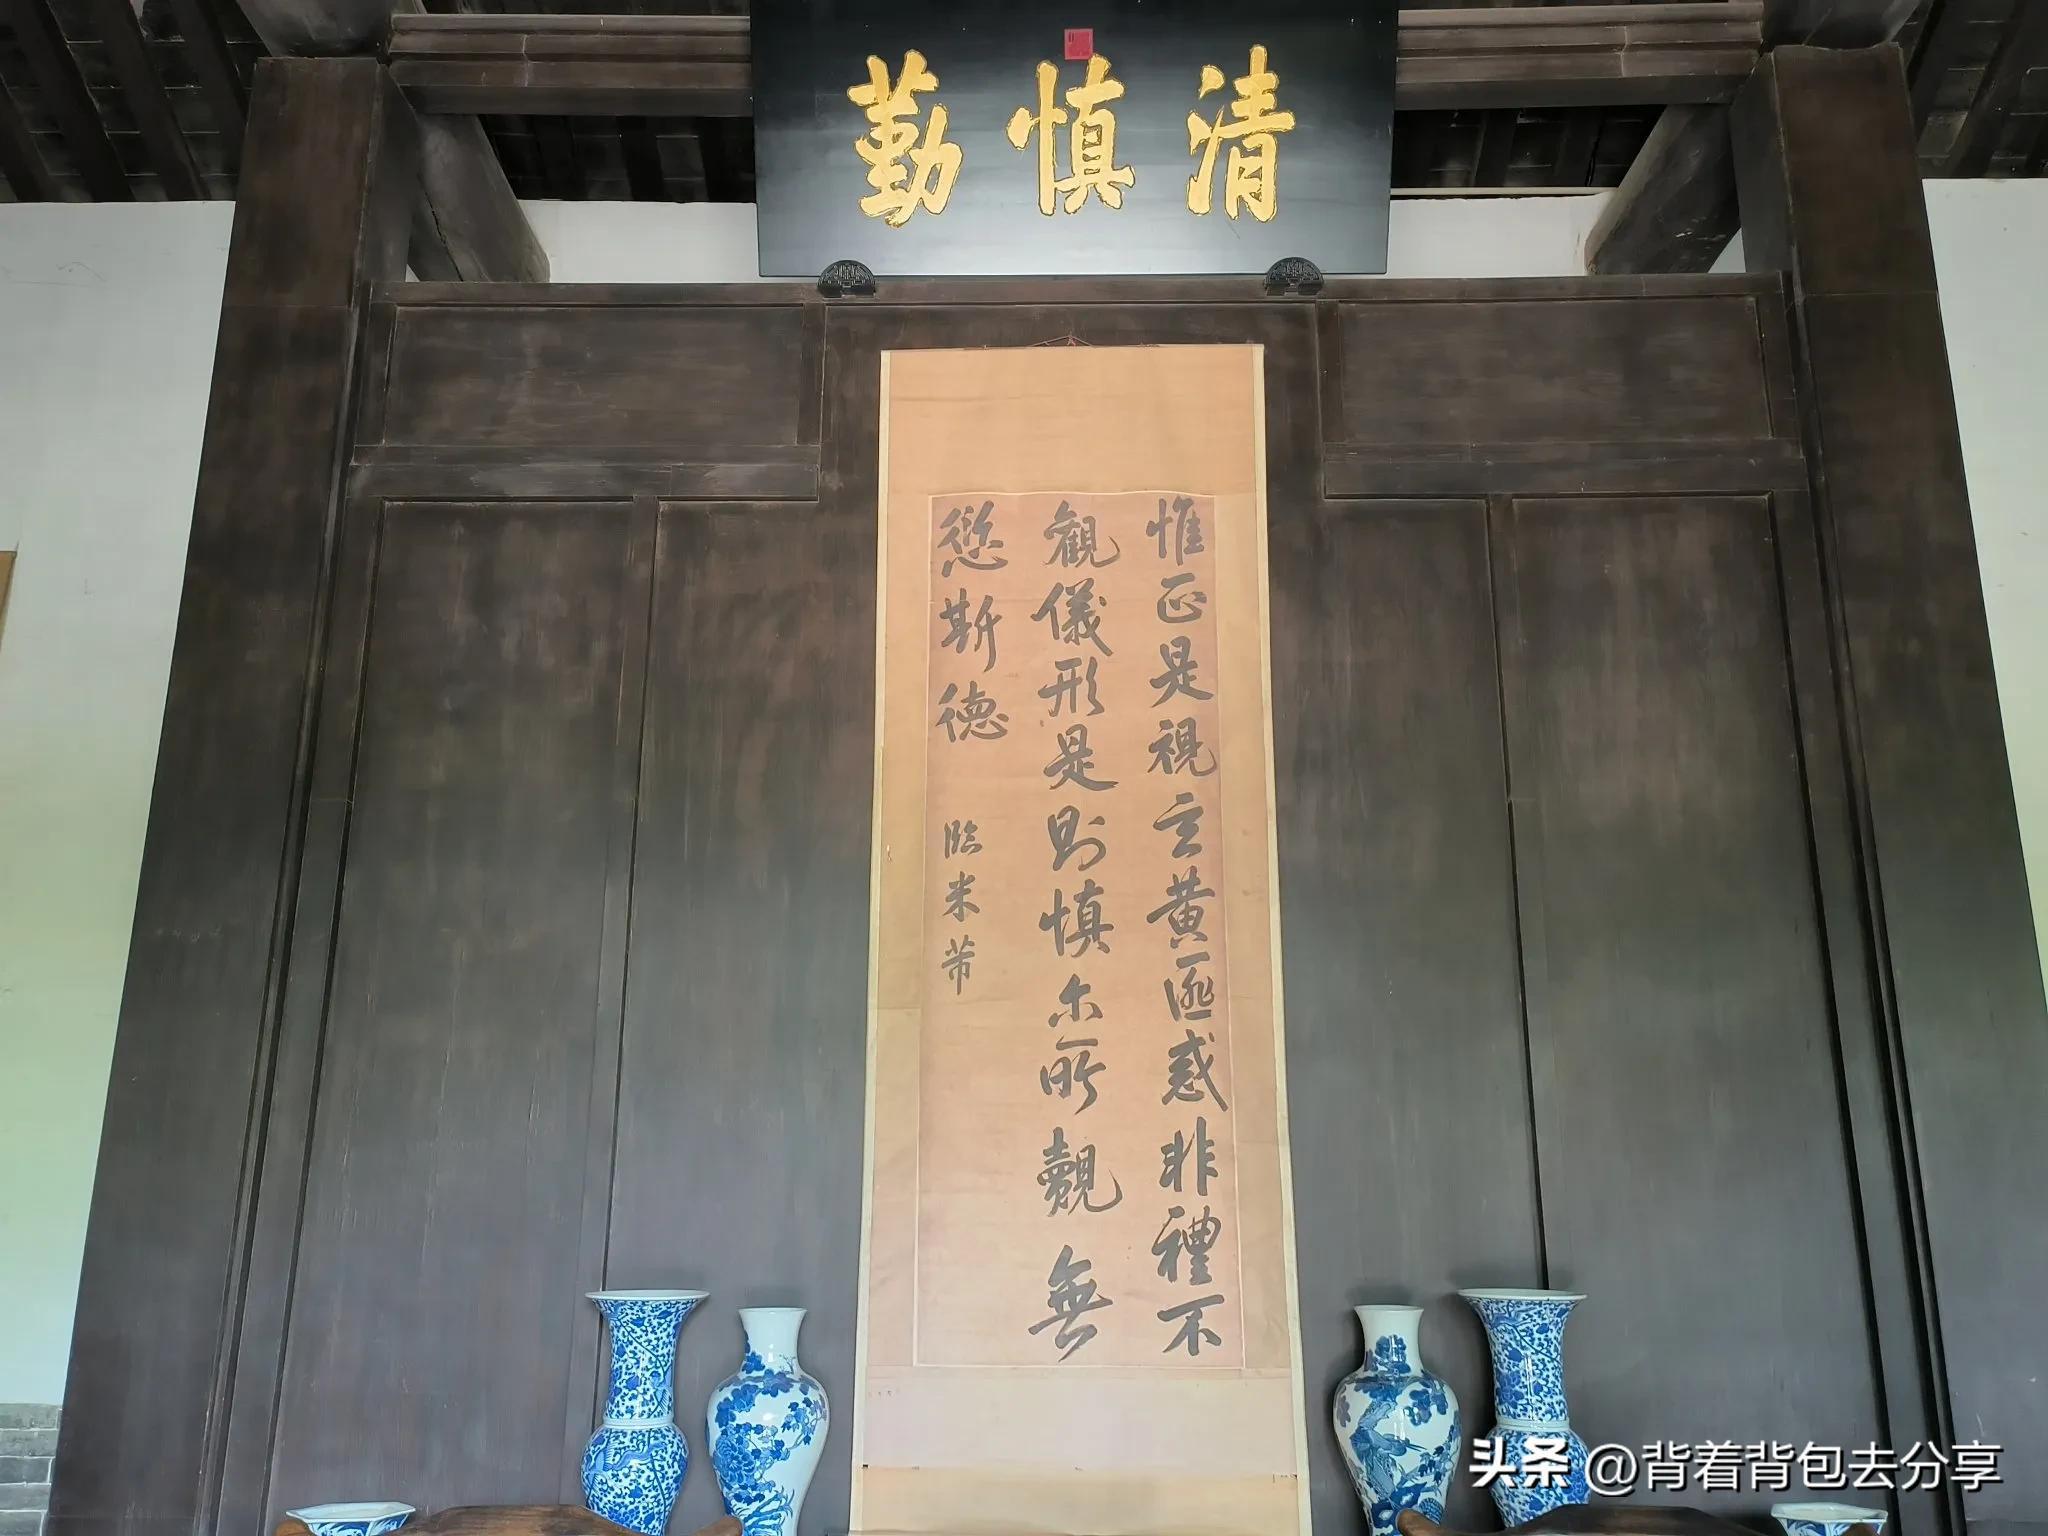 清慎勤
惟正是視玄黃匪惑非禮不
觀儀形是則慎尔所覿無
愆斯德 臨米芾
头条 @背着背包去分享